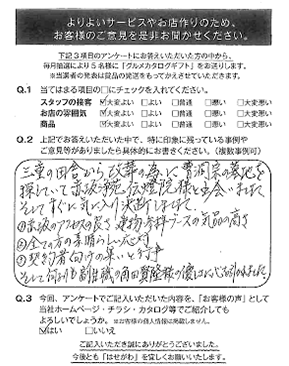 よりよいサービスやお店作りのため、
お客様のご意見を是非お聞かせください。
下記3項目のアンケートにお答えいただいた方の中から、
毎月抽選により5名様に「グルメカタログギフト」をお送りします。
※当選者の発表は賞品の発送をもってかえさせていただきます。
Q.1 当てはまる項目の□にチェックを入れてください。
スタッフの接客 ☑大変よい □よい □普通 □悪い □大変悪い
お店の雰囲気 ☑大変よい □よい □普通 □悪い □大変悪い
商品 ☑大変よい □よい □普通 □悪い □大変悪い
Q.2 上記でお答えいただいた中で、特に印象に残っている事例や
ご意見等がありましたら具体的にお書きください。(複数事例可)
三重の田舎から改葬の為に曹洞宗の墓地を
探していて赤坂の 院様と出会いました
そしてすぐに気に入り決断しました。
①赤坂のアクセスの良さ 建物 ブースの気品の高さ
②全ての方の素晴らしい応対
③契約者向けの集いと行事
そして何より副住職の角田賢隆様の
Q.3 今回、アンケートでご記入いただいた内容を、「お客様の声」として
当社ホームページ・チラシ・カタログ等でご紹介しても
よろしいでしょうか。※お客様の個人情報は掲載しません。
☑はい □いいえ
ご記入いただき誠にありがとうございました。
今後とも「はせがわ」を宜しくお願いいたします。